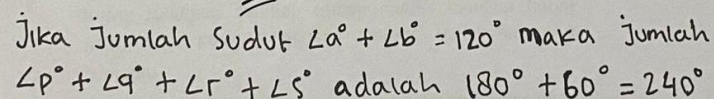 Jika jumlah sudut ∠a° + ∠b° = 120° maka jumlah
∠p° + ∠q° + ∠r° + ∠s° adalah 180° + 60° = 240°